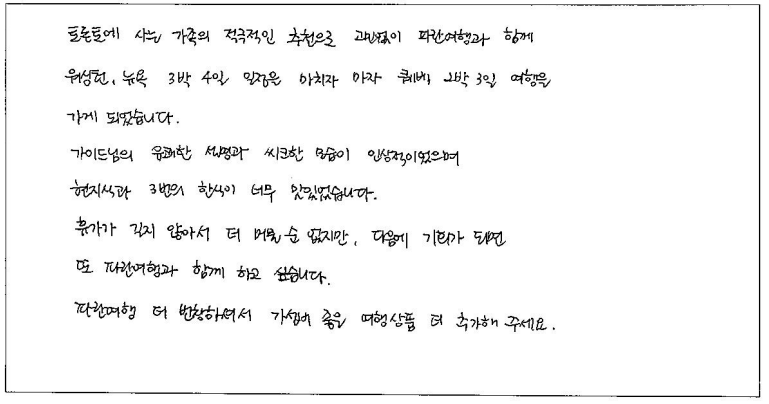 토론토에 사는 가족의 적극적인 추천으로 고민없이 파란여행과 함께
워싱턴, 뉴욕 3박 4일 일정을 마치자 마자 퀘벡 2박 3일 여행을
가게 되었습니다.
가이드님의 유쾌한 설명과 씨크한 모습이 인상적이었으며
현지식과 3번의 한식이 너무 맛있었습니다.
휴가가 길지 않아서 더 머물 순 없지만, 다음에 기회가 되면
또 파란여행과 함께 하고 싶습니다.
파란여행 더 번창하셔서 가성비 좋은 여행상품 더 추가해 주세요.